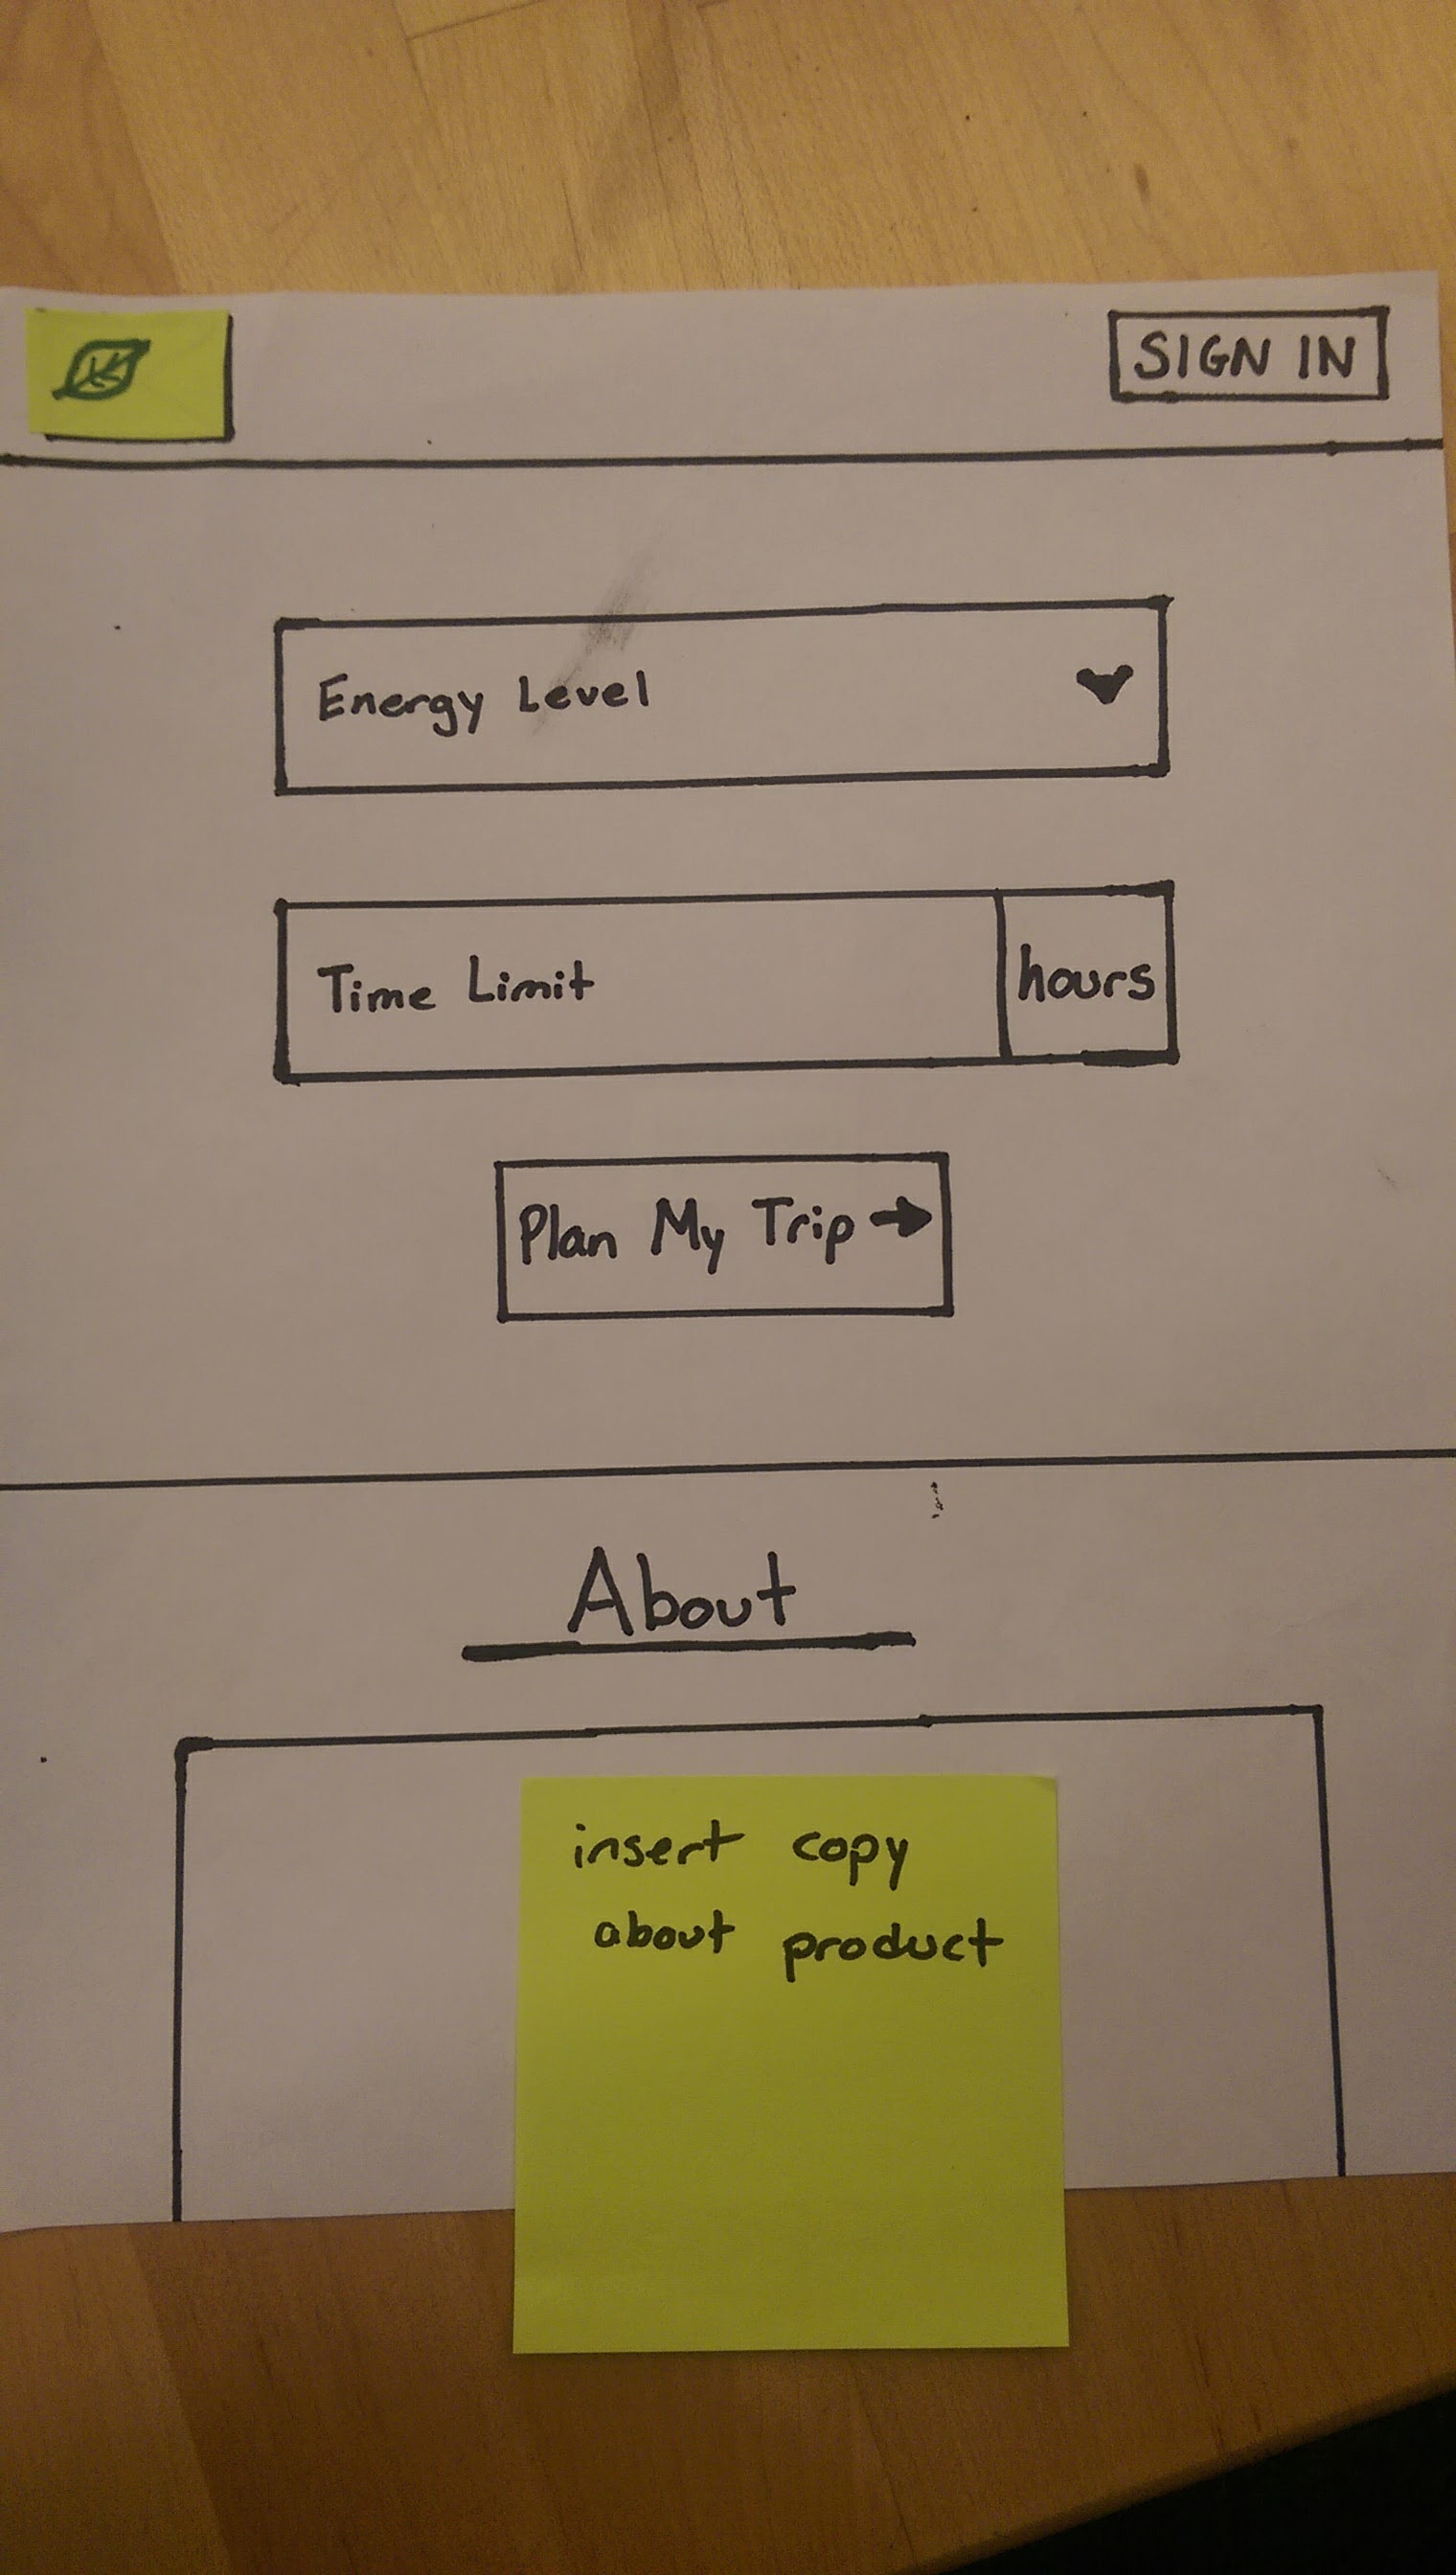 SIGN IN
Energy Level
Time Limit
hours
Plan My Trip →
About
insert copy
about product